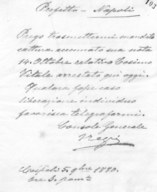 Prefetto - Napoli
Prego trasmettermi mandato
cattura accennato sua nota
14 Ottobre relativo Cosimo
Vitale arrestato qui oggi.
Qualora fosse caso
liberazione individuo
favorisca telegrafarmi.
Console Generale